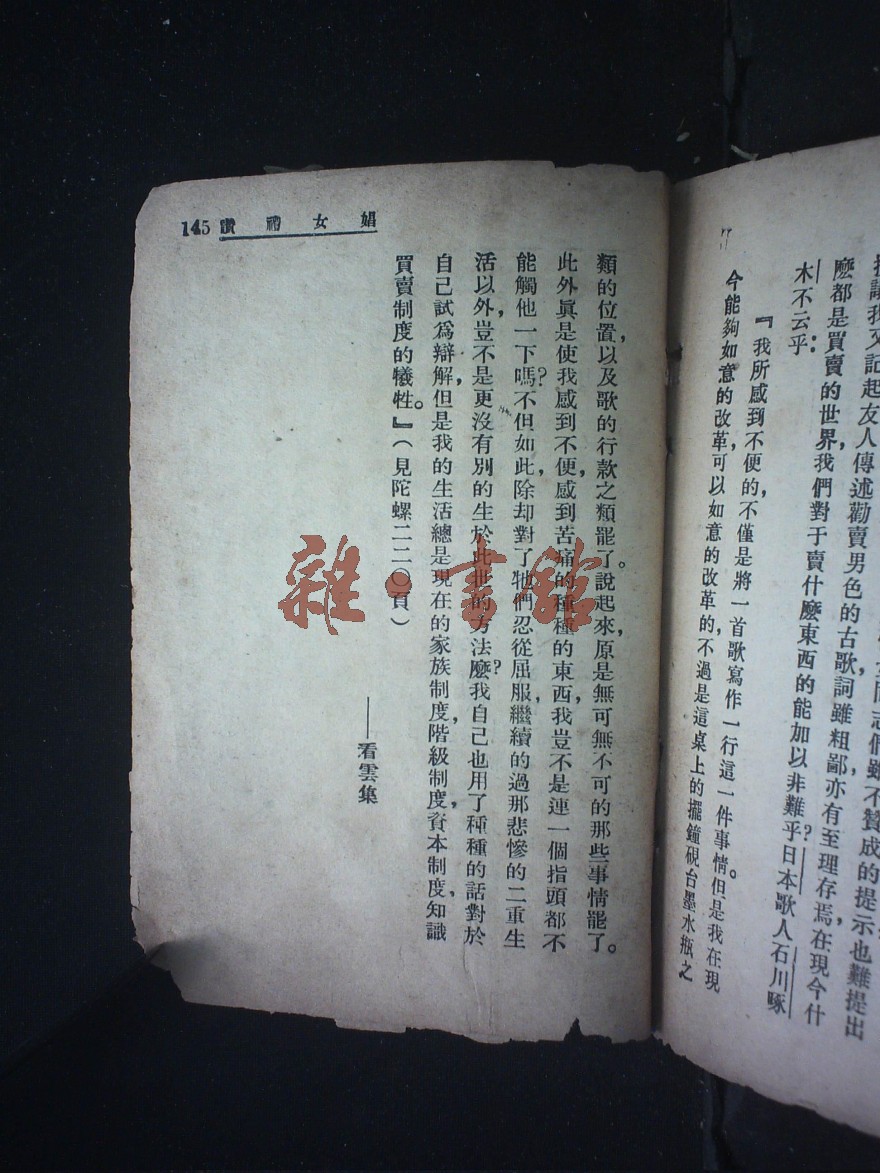 提議我又記起友人傳述勸賣男色的古歌詞雖粗鄙，亦有至理存焉，在現今什
麼都是買賣的世界，我們對于賣什麼東西的能加以非難乎？日本歌人石川啄
木不云乎：
『我所感到不便的，不僅是將一首歌寫作一行這一件事情。但是我在現
今能夠如意的改革，可以如意的改革的，不過是這桌上的擺鐘硯台墨水瓶之
145 娼女禮讚
類的位置，以及歌的行款之類罷了。說起來，原是無可無不可的那些事情罷了。
此外真是使我感到不便，感到苦痛的種種的東西，我豈不是連一個指頭都不
能觸他一下嗎？不但如此，除却對了牠們忍從屈服，繼續的過那悲慘的二重生
活以外，豈不是更沒有別的生於此世的方法麼？我自己也用了種種的話對於
自己試爲辯解，但是我的生活總是現在的家族制度，階級制度，資本制度，知識
買賣制度的犧牲。』（見陀螺二二〇頁）
——看雲集
雜·書館